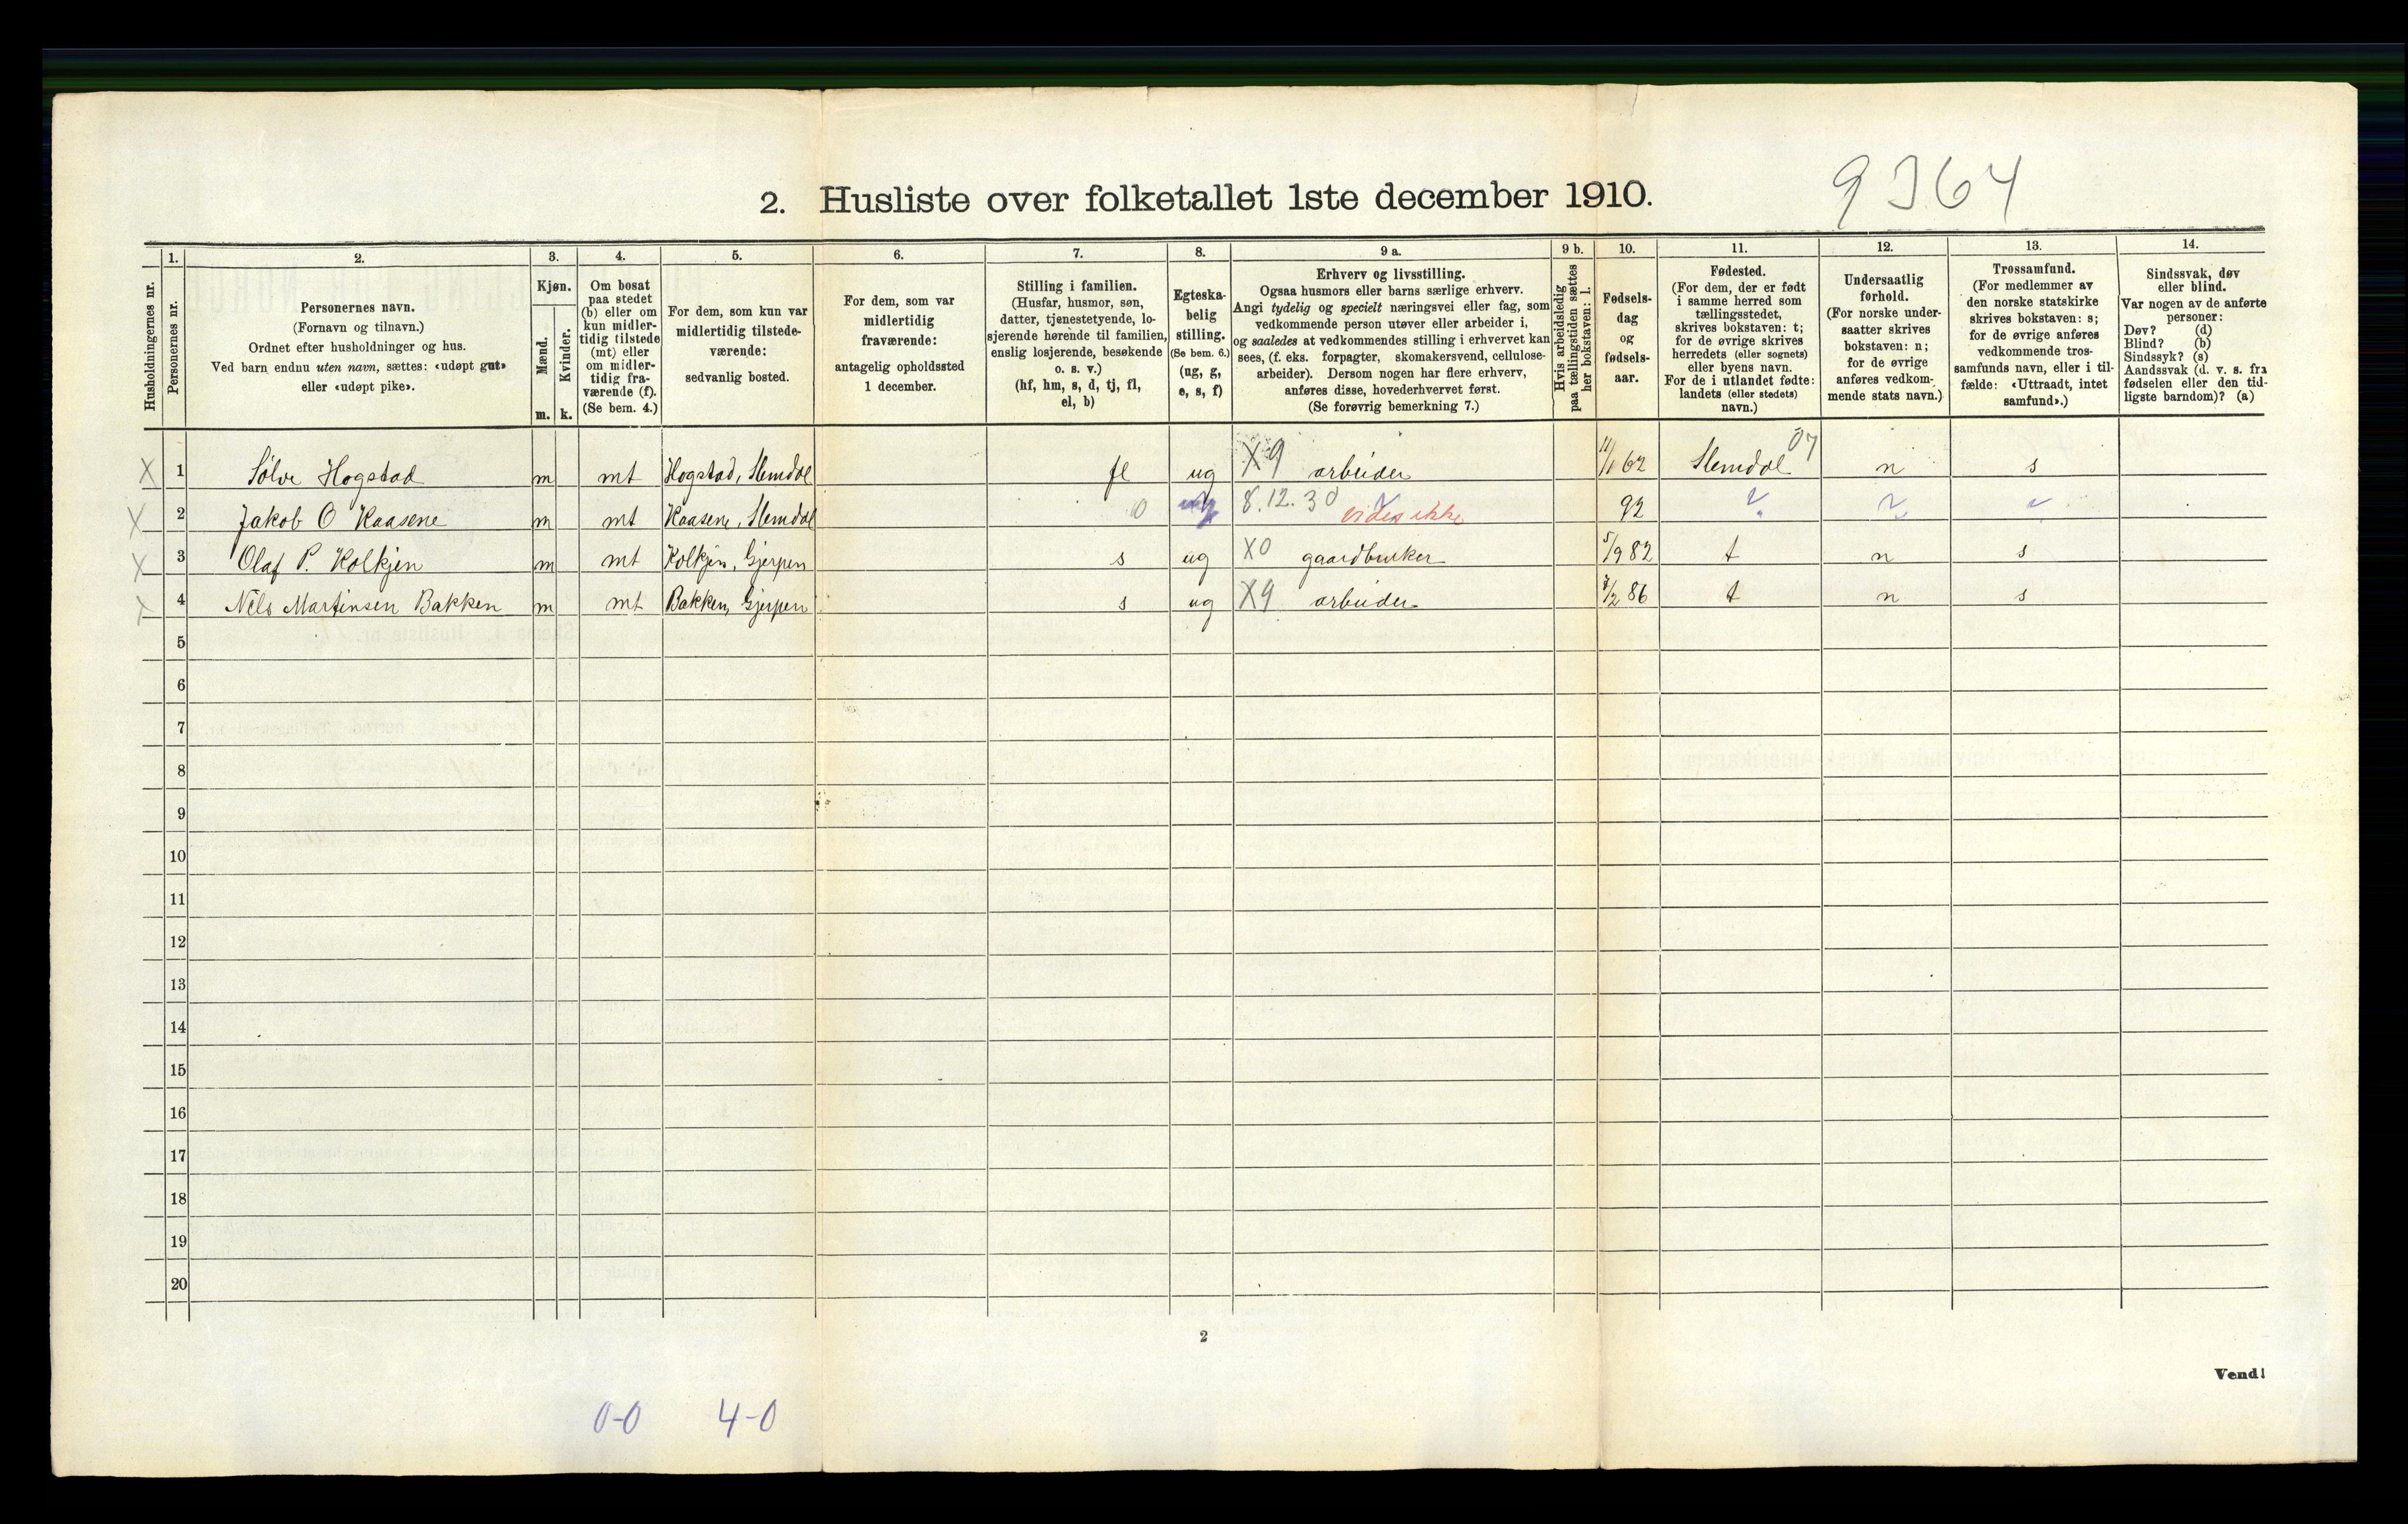 9364
2. Husliste over folketallet 1ste december 1910.
Husholdningernes nr.
1.
Personernes nr.
2.
Personernes navn.
(Fornavn og tilnavn.)
Ordnet efter husholdninger og hus.
Ved barn endnu uten navn, sættes: «udøpt gut»
eller «udøpt pike».
3.
Kjøn.
Mænd.
Kvinder.
m. k.
4.
Om bosat
paa stedet
(b) eller om
kun midler-
tidig tilstede
(mt) eller
om midler-
tidig fra-
værende (f).
(Se bem. 4.)
5.
For dem, som kun var
midlertidig tilstede-
værende:
sedvanlig bosted.
6.
For dem, som var
midlertidig
fraværende:
antagelig opholdssted
1 december.
7.
Stilling i familien.
(Husfar, husmor, søn,
datter, tjenestetyende, lo-
sjerende hørende til familien,
enslig losjerende, besøkende
o. s. v.)
(hf, hm, s, d, tj, fl,
el, b)
8.
Egteska-
belig
stilling.
(Se bem. 6.)
(ug, g,
e, s, f)
9 a.
Erhverv og livsstilling.
Ogsaa husmors eller barns særlige erhverv.
Angi tydelig og specielt næringsvei eller fag, som
vedkommende person utøver eller arbeider i,
og saaledes at vedkommendes stilling i erhvervet kan
sees, (f. eks. forpagter, skomakersvend, cellulose-
arbeider). Dersom nogen har flere erhverv,
anføres disse, hovederhvervet først.
(Se forøvrig bemerkning 7.)
9 b.
Hvis arbeidsledig
paa tællingstiden sættes
her bokstaven: l.
10.
Fødsels-
dag
og
fødsels-
aar.
11.
Fødested.
(For dem, der er født
i samme herred som
tællingsstedet,
skrives bokstaven: t;
for de øvrige skrives
herredets (eller sognets)
eller byens navn.
For de i utlandet fødte:
landets (eller stedets)
navn.)
12.
Undersaatlig
forhold.
(For norske under-
saatter skrives
bokstaven: n;
for de øvrige
anføres vedkom-
mende stats navn.)
13.
Trossamfund.
(For medlemmer av
den norske statskirke
skrives bokstaven: s;
for de øvrige anføres
vedkommende tros-
samfunds navn, eller i til-
fælde: «Uttraadt, intet
samfund».)
14.
Sindssvak, døv
eller blind.
Var nogen av de anførte
personer:
Døv? (d)
Blind? (b)
Sindssyk? (s)
Aandssvak (d. v. s. fra
fødselen eller den tid-
ligste barndom)? (a)
X 1 Sølve Hogstad m mt Hogstad, Slemdal fl ug X9 arbeider 11/1 62 Slemdal 07 n s
X 2 Jakob O Kaasene m mt Kaasene, Slemdal 0 8.12.30 vides ikke 92
X 3 Olaf P. Kolkjen m mt Kolkjen, Gjerpen s ug X0 gaardbruker 5/9 82 t n s
X 4 Nils Martinsen Bakken m mt Bakken, Gjerpen s ug X9 arbeider 7/2 86 t n s
5
6
7
8
9
10
11
12
13
14
15
16
17
18
19
20
2
Vend!
0-0 4-0